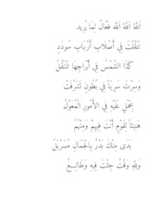 اَللهُ اَللهُ اَللهُ فَعَّالٌ لِمَا يُرِيد
تَنَقَّلْتَ فِي أَصْلَابِ أَرْبَابِ سُودَدٍ
كَذَا الشَّمْسُ فِي أَبْرَاجِهَا تَتَنَقَّلُ
وَسِرْتَ سَرِيًّا فِي بُطُونٍ تَشَرَّفَتْ
بِحَمْلٍ عَلَيْهِ فِي الْأُمُورِ الْمُعَوَّلُ
هَنِيئًا لِقَوْمٍ أَنْتَ فِيهِمْ وَمِنْهُمْ
بَدَى مِنْكَ بَدْرٌ بِالْجَمَالِ مُسَرْبَلُ
وَلِلّٰهِ وَقْتٌ جِئْتَ فِيهِ وَطَالِعٌ